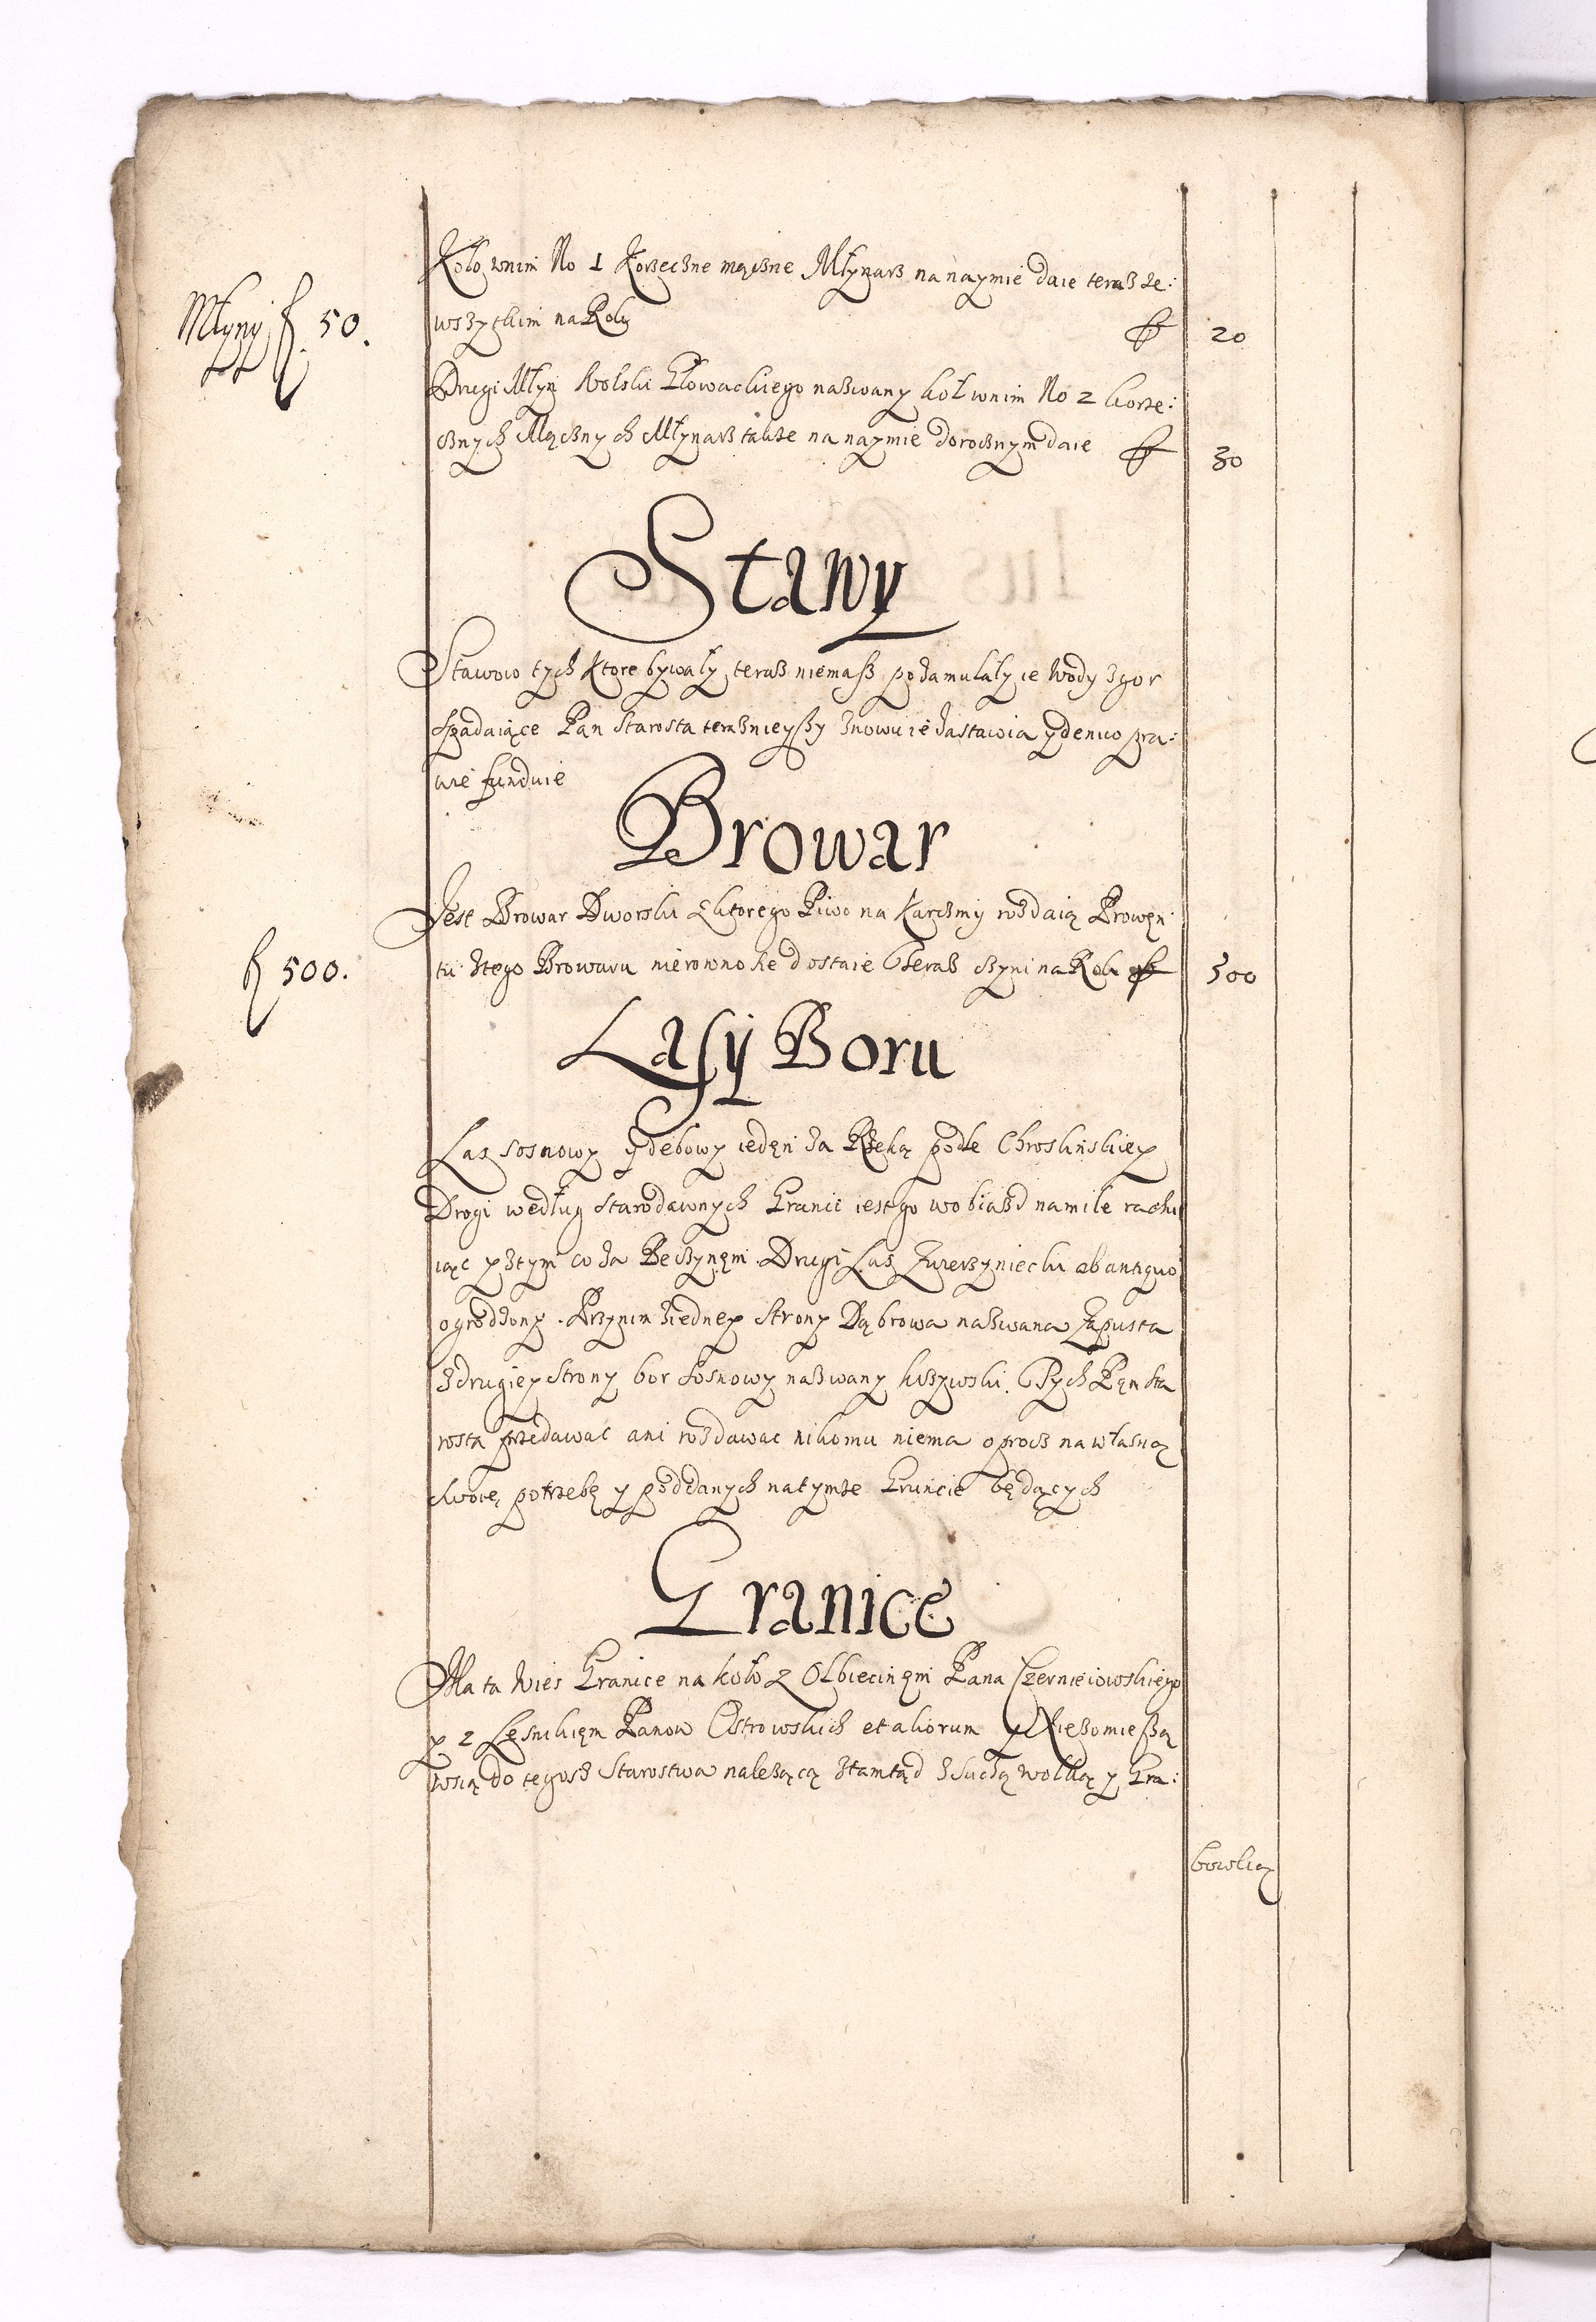 Koło wnim No 1 Korzeczne mączne Młynarz na naymie daie teraz ze:
Młyny f 50.
wszytkim na Roku ff 20
Drugi Młyn Rolski Głowackiego nazwany kół wnim No 2 korze:
cznych Mącznych Młynarz także na naymie dorocznym daie ff 30
Stawy
Stawow tych ktore bywały teraz niemasz pozamulały ie wody zgor
spadaiące Pan Starosta teraznieyszy znowu ie zastawia y denuo pra:
wie funduie
Browar
Jest Browar Dworski z ktorego Piwo na Karczmy rozdaią Prowen
f 500.
tu ztego Browaru nierowno sie dostaie Teraz czyni na Rok ff 500
Lasy Boru
Las sosnowy y debowy ieden za Rzeką podle Chroslinskiey
Drogi według starodawnych Granic iest go wobiazd na mile rachu
iąc y ztym co za Beczynem Drugi Las Zwierzyniecki ab antiquo
ogrodzony. Przynim ziedney Strony Dąbrowa nazwana Zapusta
zdrugiey strony bor sosnowy nazwany krzywski. Tych Pan Sta
rosta przedawac ani rozdawac nikomu niema oprocz na własną
swoię potrzebę y poddanych natymze Gruncie będących
Granice
Ma ta Wies Granice na koło z Olbiecinem Pana Czernieiowskiego
y z Lesnikiem Panow Ostrowskich et aliorum y Xiezomieszą
wsią do tegosz Starostwa nalezącą ztamtąd z Suchą wolką y Gra:
bowką